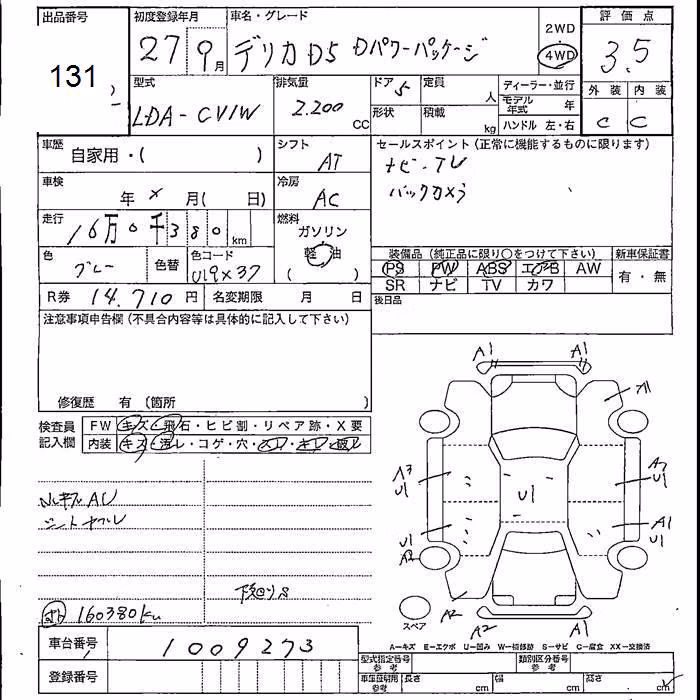 出品番号 初度登録年月 車名・グレード 2WD 評価点
131 27 9月 デリカD5 Dパワーパッケージ 4WD 3.5
型式 排気量 ドア 5 定員 人 ディーラー・並行 外装 内装
LDA-CV1W 2.200 CC 形状 積載 kg モデル年式 年 C C
ハンドル 左・右
車歴 自家用・( ) シフト AT セールスポイント(正常に機能するものに限ります)
ナビ・TV
車検 年 × 月( 日) 冷房 AC バックカメラ
走行 16万0千380km 燃料 ガソリン
軽油
( )
色 グレー 色替 色コード U19×37 装備品(純正品に限り○をつけて下さい) 新車保証書
PS PW ABS エアB AW 有・無
SR ナビ TV カワ
R券 14.710円 名変期限 月 日 後日品
注意事項申告欄(不具合内容等は具体的に記入して下さい)
修復歴 有 (箇所 )
検査員記入欄 FW キズ・飛石・ヒビ割・リペア跡・X要
内装 キズ・汚レ・コゲ・穴・スレ・キレ・破レ
A1 A1
A1
A3 U1
U1
A2 U1
U1 A2
A1 U1
シートヤブレ
下回りS
160380km
スペア
A2 A2 A1
A-キズ E-エクボ U-凹み W-補修跡 S-サビ C-腐食 XX-交換済
車台番号 1009273
型式指定番号 参考 類別区分番号 参考
登録番号
車庫証明用 参考 長さ cm 幅 cm 高さ cm